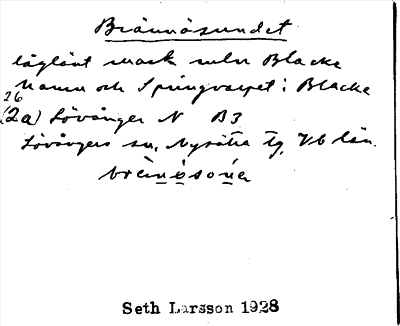 Brännåsundet
låglänt mark mln Blacke
hamn och Springvarpet i Blacke
26
(2a) Lövånger N B3
Lövångers sn, Nysätra tg, Vb län.
Seth Larsson 1928